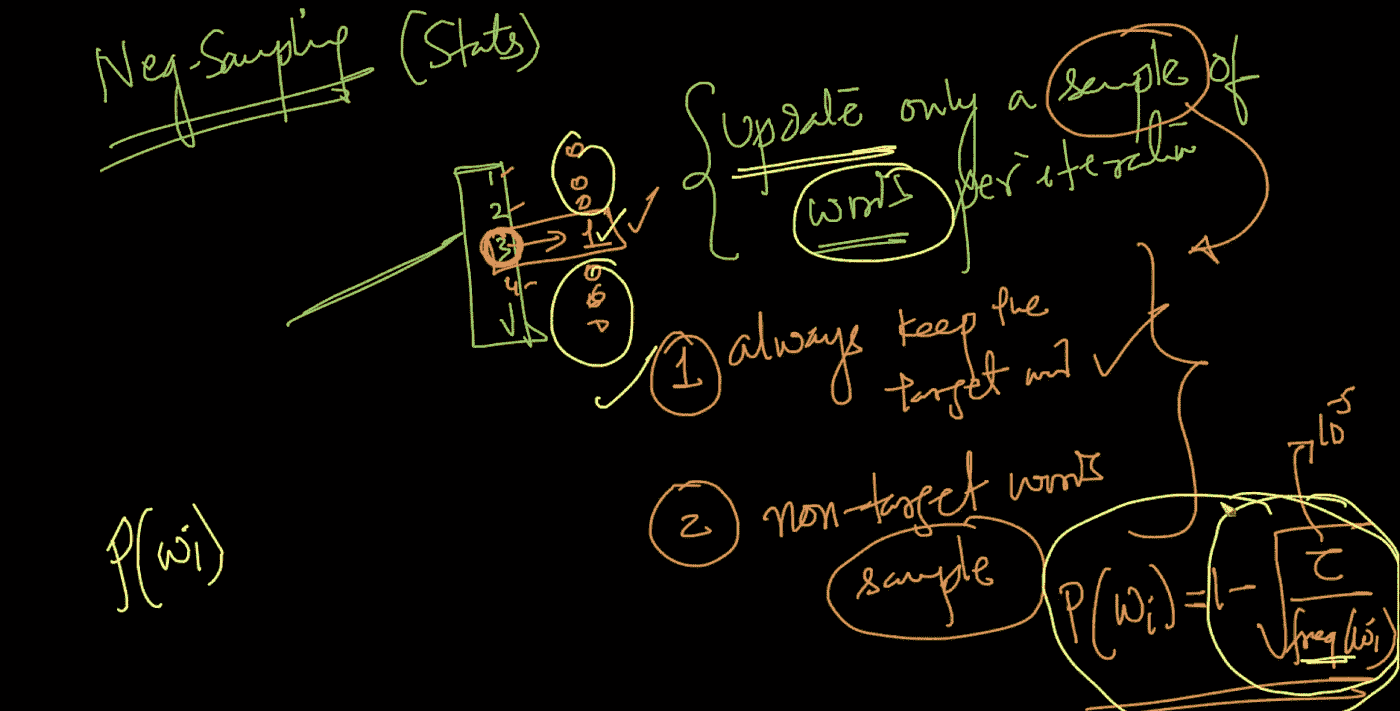 Neg-Sampling (Stats)
Update only a sample of
words per iteration
1
2
3 → 1
4
V
1 always keep the
target word
2 non-target words
sample
10^-5
P(wi) = 1 - √(τ / freq(wi))
P(wi)